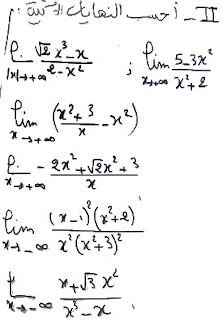 II - أحسب النهايات الآتية:
lim |x|→+∞ (√2 x³ - x)/(2 - x²) ; lim x→+∞ (5 - 3x²)/(x² + 2)
lim x→+∞ ((x² + 3)/x - x²)
lim x→+∞ (-2x² + √2x² + 3)/x
lim x→-∞ ((x - 1)²(x² + 2))/(x²(x² + 3)²)
lim x→-∞ (x + √3 x²)/(x³ - x)